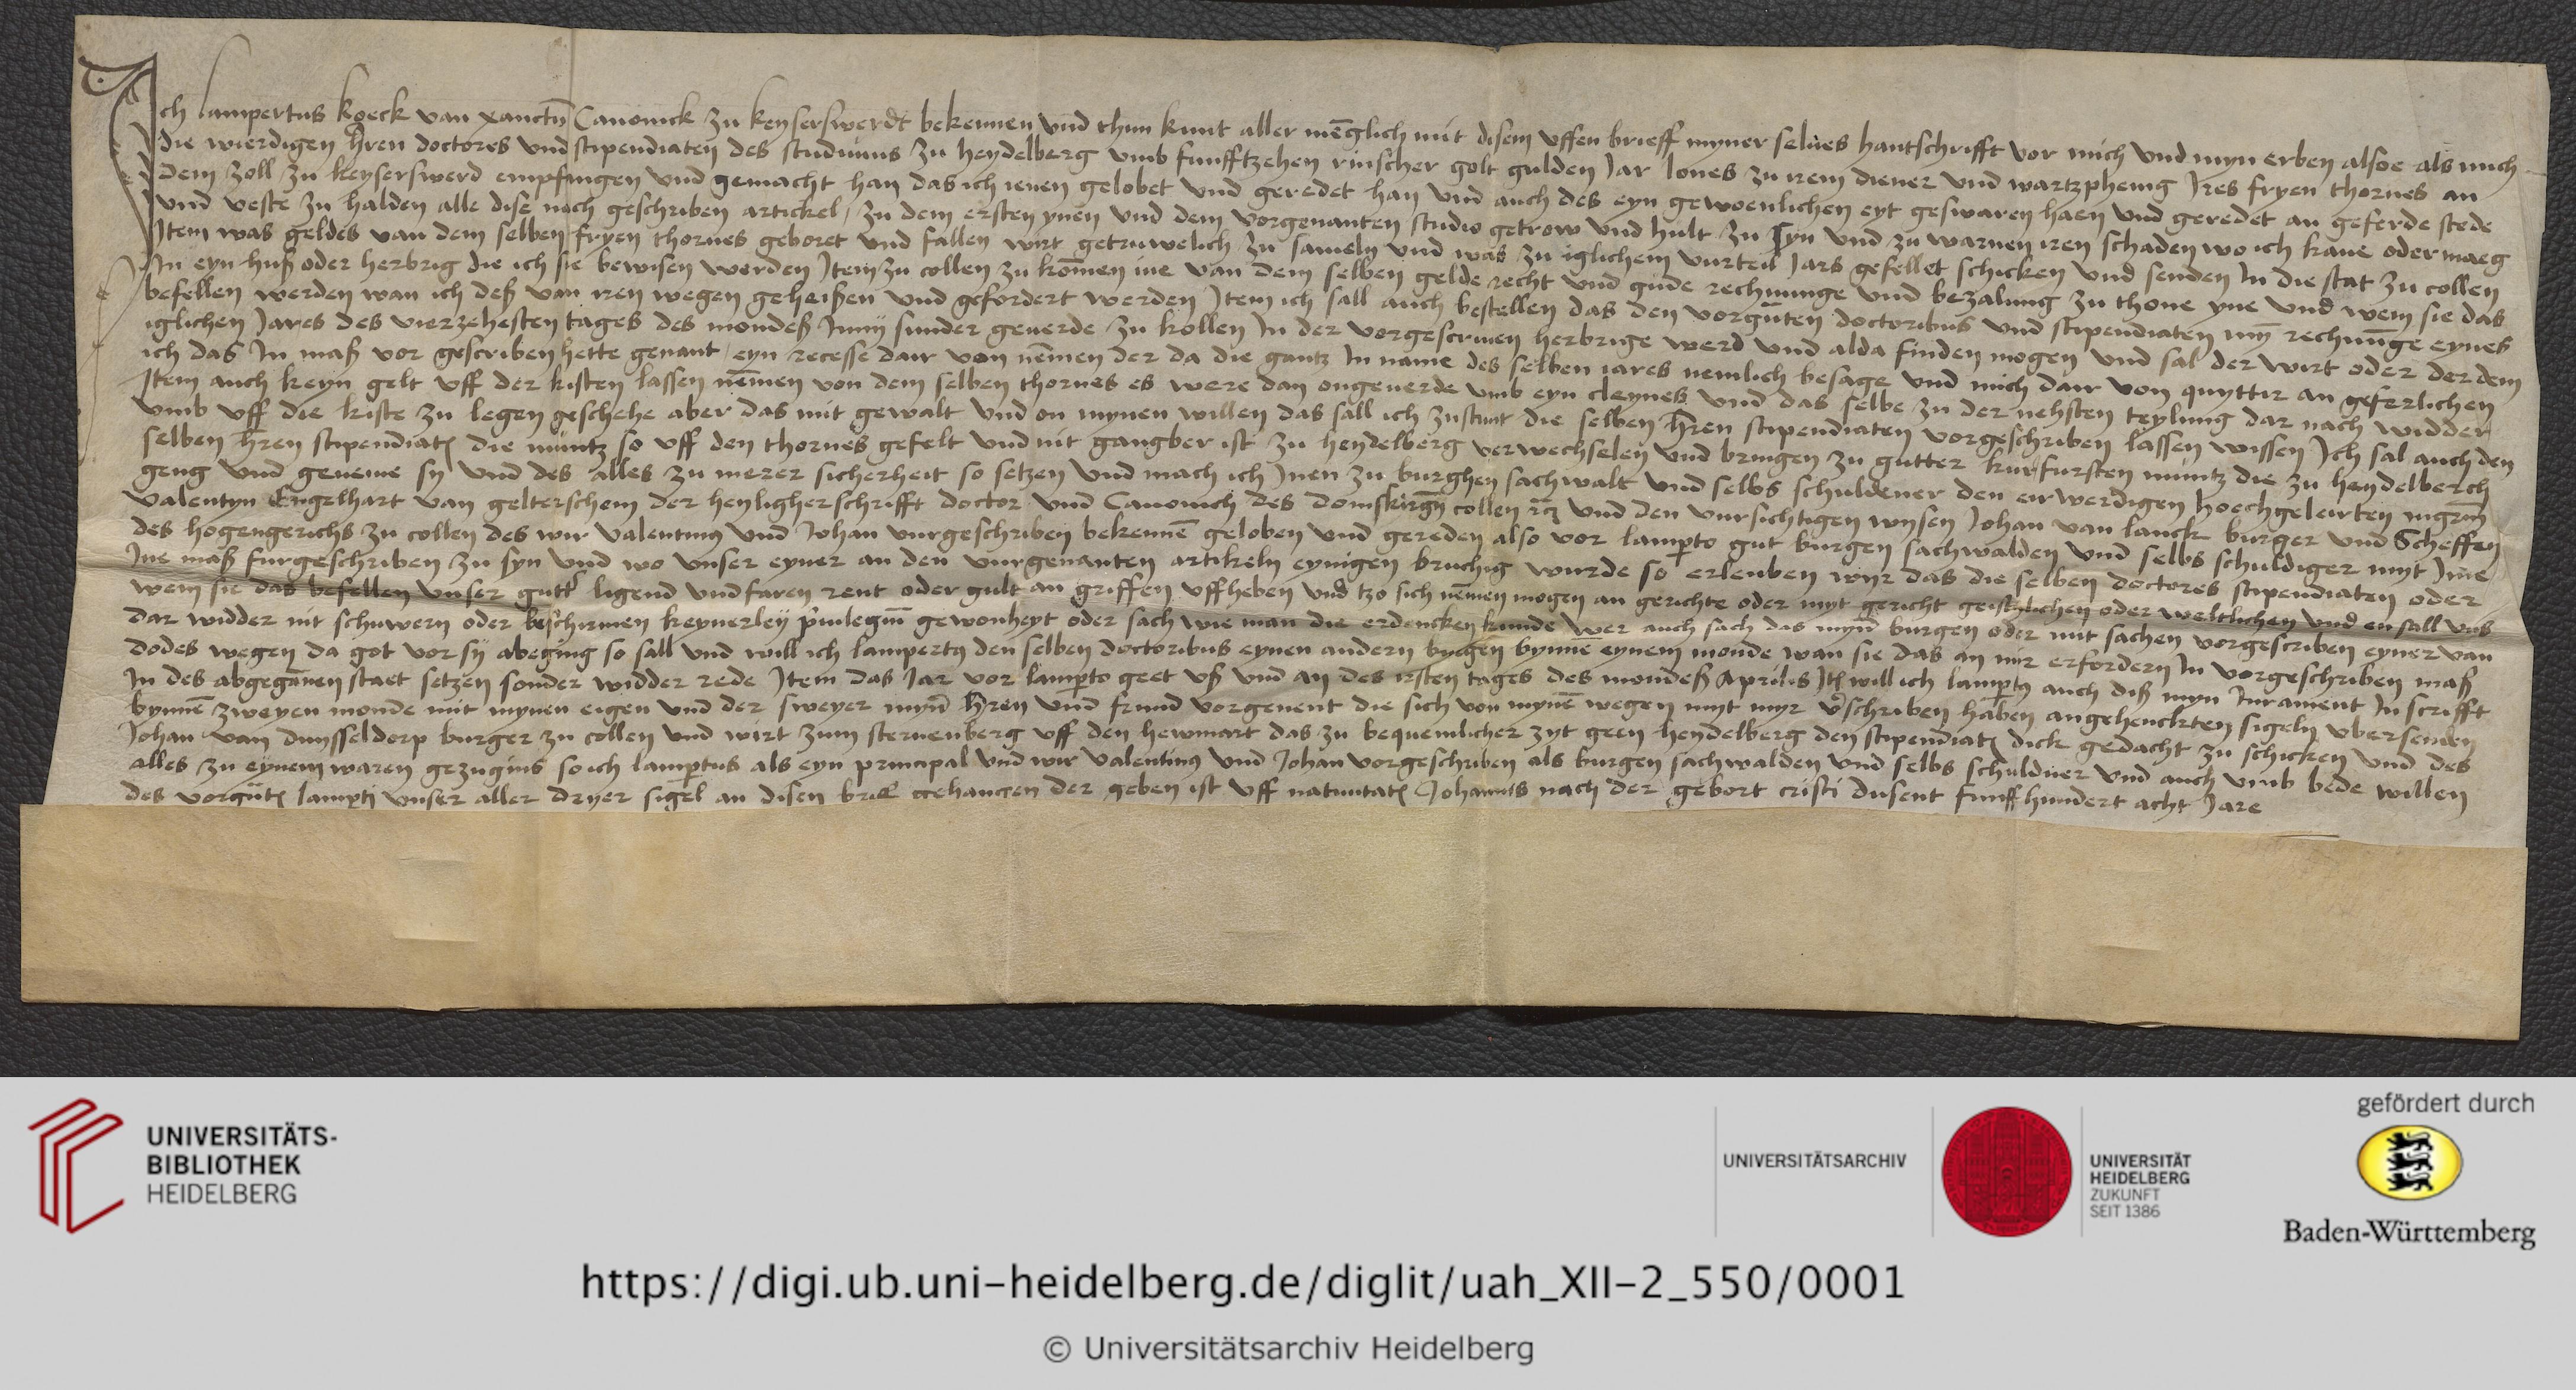 Ich lampertus koeck van xanctn̄ Canonick zu keyserswerdt bekennen vnd thun kunt aller mēglich mit disem vffen brieff myner selues hantschrifft vor mich vnd myn erben alsoe als mich
die wierdigen hren doctores vnd stipendiaten des studiums zu heydelberg vmb funfftzehen rinscher golt gulden Jar lones zu irem diener vnd wartzphenig Ires fryen thornes an
dem zoll zu keyserswerd empfangen vnd gemacht han das ich ienen gelobet vnd geredet han vnd auch des eyn gewoenlichen eyt geswaren haen vnd geredet an geferde stede
vnd veste zu halden alle dise nach geschriben artickel zu dem ersten ynen vnd dem vorgenanten studio getrow vnd hult zu syn vnd zu warnen iren schaden wo ich kane oder maeg
Item was geldes van dem selben fryen thornes geboret vnd fallen wirt getruwelich zu sameln vnd was zu iglichem virteil Jars gefellet schicken vnd senden In die stat zu collen
In eyn huß oder herbrig die ich sie bewisen werden Item zu collen zu kom̄en ine van dem selben gelde recht vnd gude rechnunge vnd bezalung zu thone yne vnd wem sie das
befellen werden wan ich deß van iren wegen geheißen vnd gefordert werden Item ich sall auch bestellen das den vorgn̄ten doctoribus vnd stipendiaten my̅ rechnūge eynes
iglichen Jares des vierzehesten tages des mondeß Juny sunder geuerde zu kollen In der vorgescriuen herbrige werd vnd alda finden mogen vnd sal der wirt oder der dem
ich das In maß vor gescriben hette genant eyn recesse dair von nēmen der da die gantz In name des selben iares nemlich besage vnd mich dair von quyttir an geferlichen
Item auch keyn gelt vff der kisten lassen nēmen von dem selben thornes es were dan ongeuerde vmb eyn cleyneß vnd das selbe zu der nehsten teylung dar nach widder
vmb vff die kiste zu legen geschehe aber das mit gewalt vnd on mynen willen das sall ich zustunt die selben hren stipendiaten vorgeschriben lassen wissen Ich sal auch den
selben hren stipendiatē die müntz so vff den thornes gefelt vnd nit gangber ist zu heydelberg verwechselen vnd bringen zu gutter kurfursten müntz die zu heydelberch
geng vnd geneme sy vnd des alles zu merer sicherheit so setzen vnd mach ich Inen zu burghen sachwalt vnd selbs schuldener den eirwerdigen hoechgeleirten mgrm̄
valentyn Engelhart van gelterschem der heyligher schrifft doctor vnd Canonich des domskirgn̄ collen rc̄ vnd den vursichtigen wysen Johan van lanck burger vnd Scheffen
des hogengerichs zu collen des wir valentinꝰ vnd Johan vurgeschriben bekennē geloben vnd gereden also vor lamperto gut burgen sachwalden vnd selbs schuldiger myt Ime
Ine maß furgeschriben zu syn vnd wo vnser eyner an den vurgenanten artikeln eynigen bruchig wurde so erleuben wyr das die selben doctores stipendiaten oder
wem sie das befellen vnser gutt ligend vnd faren rent oder gult an griffen vffheben vnd tzo sich nēmen mogen an gerichte oder myt gericht geistlichen oder weltlichen vnd en sall vns
dar widder nit schuwern oder beschirmen keynerley priuilegiū gewonheyt oder sach wie man die erdencken kunde wer auch sach das myn̄ burgen oder mit sachen vorgescriben eyner van
dodes wegen da got vor sy abeging so sall vnd will ich lampertꝰ den selben doctoribus eynen andern burgen bynne eynem monde wan sie das an mir erfordern In vorgeschriben maß
In des abgegānen staet setzen sonder widder rede Item das Jar vor lamperto geet vß vnd an des irsten tages des mondeß Aprilis Itē will ich lampertꝰ auch diß myn Jurament In scrifft
bynnē zweyen monde mit mynen eigen vnd der sweyer myn̄ hren vnd frund vorgenent die sich von mynē wegen myt myr vschriben haben angehenckten sigeln vbersenden
Johan van duysseldorp burger zu collen vnd wirt zum sternenberg vff den hewmart das zu bequemlicher zyt geen heydelberg den stipendiatē dick gedacht zu schicken vnd des
alles zu eynem waren gezugnis so ich lampertus als eyn principal vnd wir valentinꝰ vnd Johan vorgeschriben als burgen sachwalden vnd selbs schuldner vnd auch vmb bede willen
des vorgn̄tē lamperti vnser aller dryer sigel an disen brieff gehangen der geben ist vff natiuitatē Johannis nach der gebort cristi dusent funffhundert acht Jare
UNIVERSITÄTS-
BIBLIOTHEK
HEIDELBERG
UNIVERSITÄTSARCHIV
UNIVERSITÄT
HEIDELBERG
ZUKUNFT
SEIT 1386
gefördert durch
Baden-Württemberg
https://digi.ub.uni-heidelberg.de/diglit/uah_XII-2_550/0001
© Universitätsarchiv Heidelberg